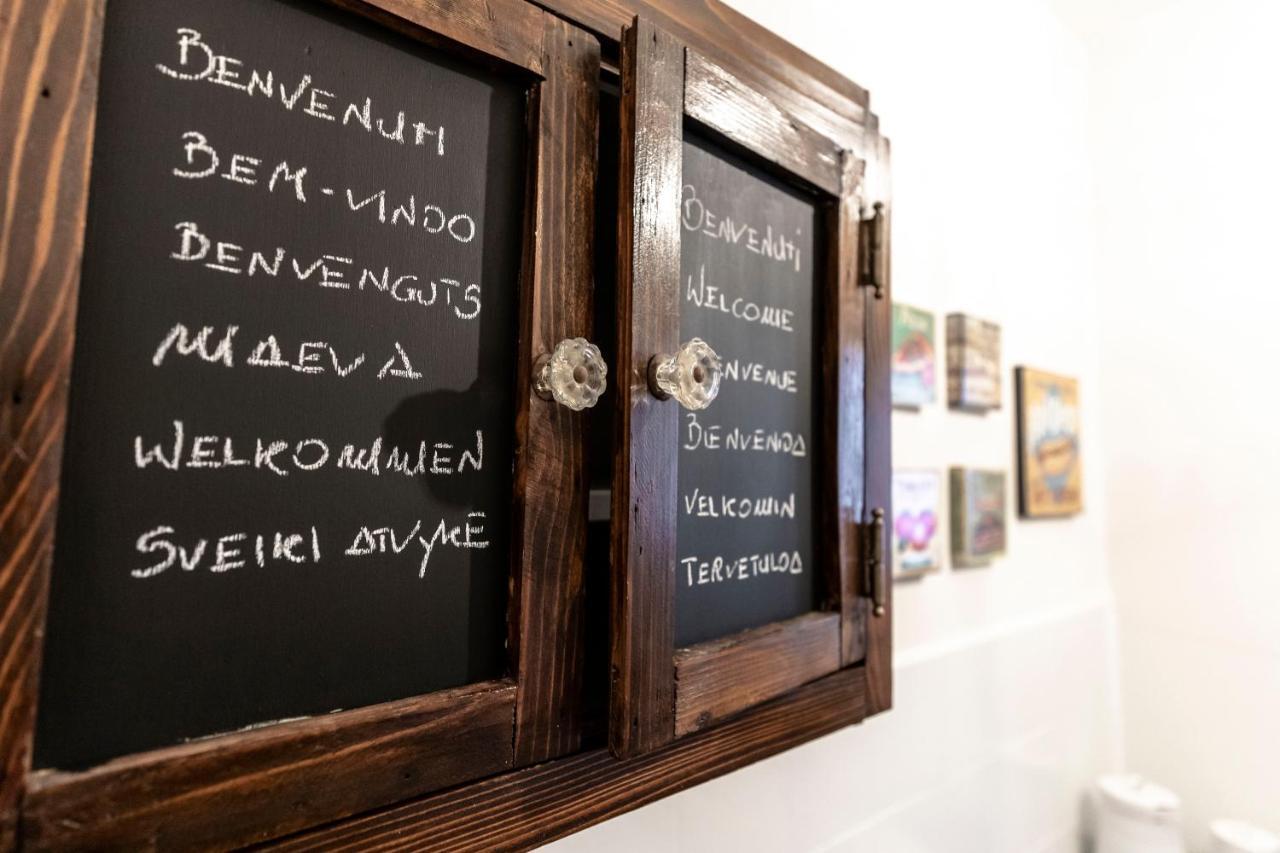 BENVENUTI
BEM-VINDO
BENVENGUTS
MIAEVA
WELKOMMEN
SVEIKI ATVYKE
BENVENUTI
WELCOME
ENVENUE
BIENVENIDA
VELKOMIN
TERVETULOA